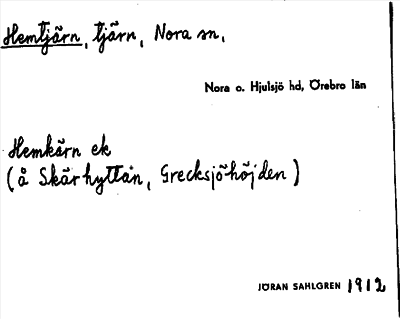 Hemtjärn, tjärn, Nora sn,
Nora o. Hjulsjö hd, Örebro län
Hemkärn ek
(å Skärhyttan, Grecksjöhöjden)
JÖRAN SAHLGREN 1912